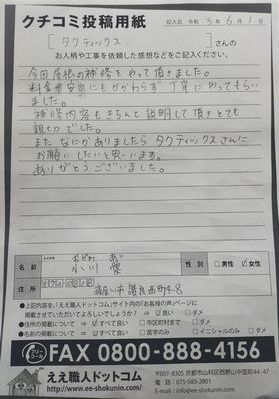 クチコミ投稿用紙
記入日 令和 3年 6月 1日
[ タクティックス ] さんの
お人柄や工事を依頼した感想などをご記入ください。
今回屋根の補修をやって頂きました。
料金が安価にもかかわらず丁寧にやってもらい
ました。
補修内容もきちんと説明して頂きとても
親切でした。
また なにかありましたら タクティックスさんに
お願いしたいと思います。
ありがとうございました。
名前
小川 愛
性別
□男性 ☑女性
住所
寝屋川市讃良西町4-8
●上記内容を、「ええ職人ドットコム」サイト内の「お客様の声」ページに
掲載させていただいてよろしいでしょうか?
☑よい □ダメ
●住所の掲載について ☑すべて良い □市区町村まで □ダメ
●名前の掲載について ☑すべて良い □苗字のみ □イニシャルのみ □ダメ
FAX 0800-888-4156
ええ職人ドットコム
http://www.ee-shokunin.com/
〒607-8305 京都市山科区西野山中臣町44-7
電話: 075-583-2801
E-mail: info@ee-shokunin.com